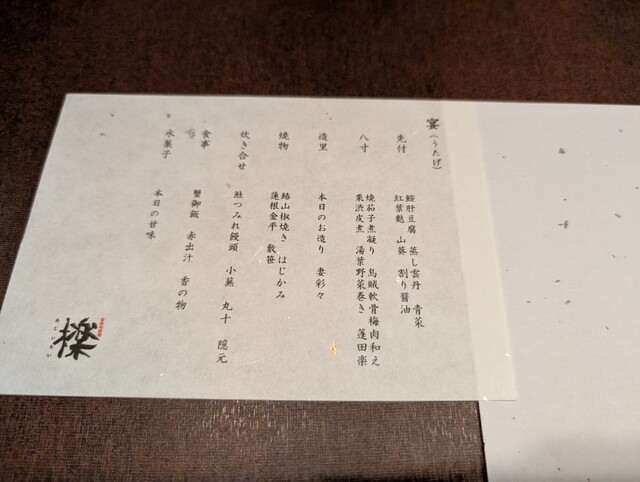 宴(うたげ)
先付
鮟肝豆腐 蒸し雲丹 青菜
紅葉麩 山葵 割り醤油
八寸
焼茄子煮凝り 烏賊軟骨梅肉和え
栗渋皮煮 湯葉野菜巻き 蓬田楽
造里
本日のお造り 妻彩々
焼物
鰆山椒焼き はじかみ
蓮根金平 敷笹
炊き合せ
鮭つみれ饅頭 小蕪 丸十 隠元
食事
蟹御飯 赤出汁 香の物
水菓子
本日の甘味